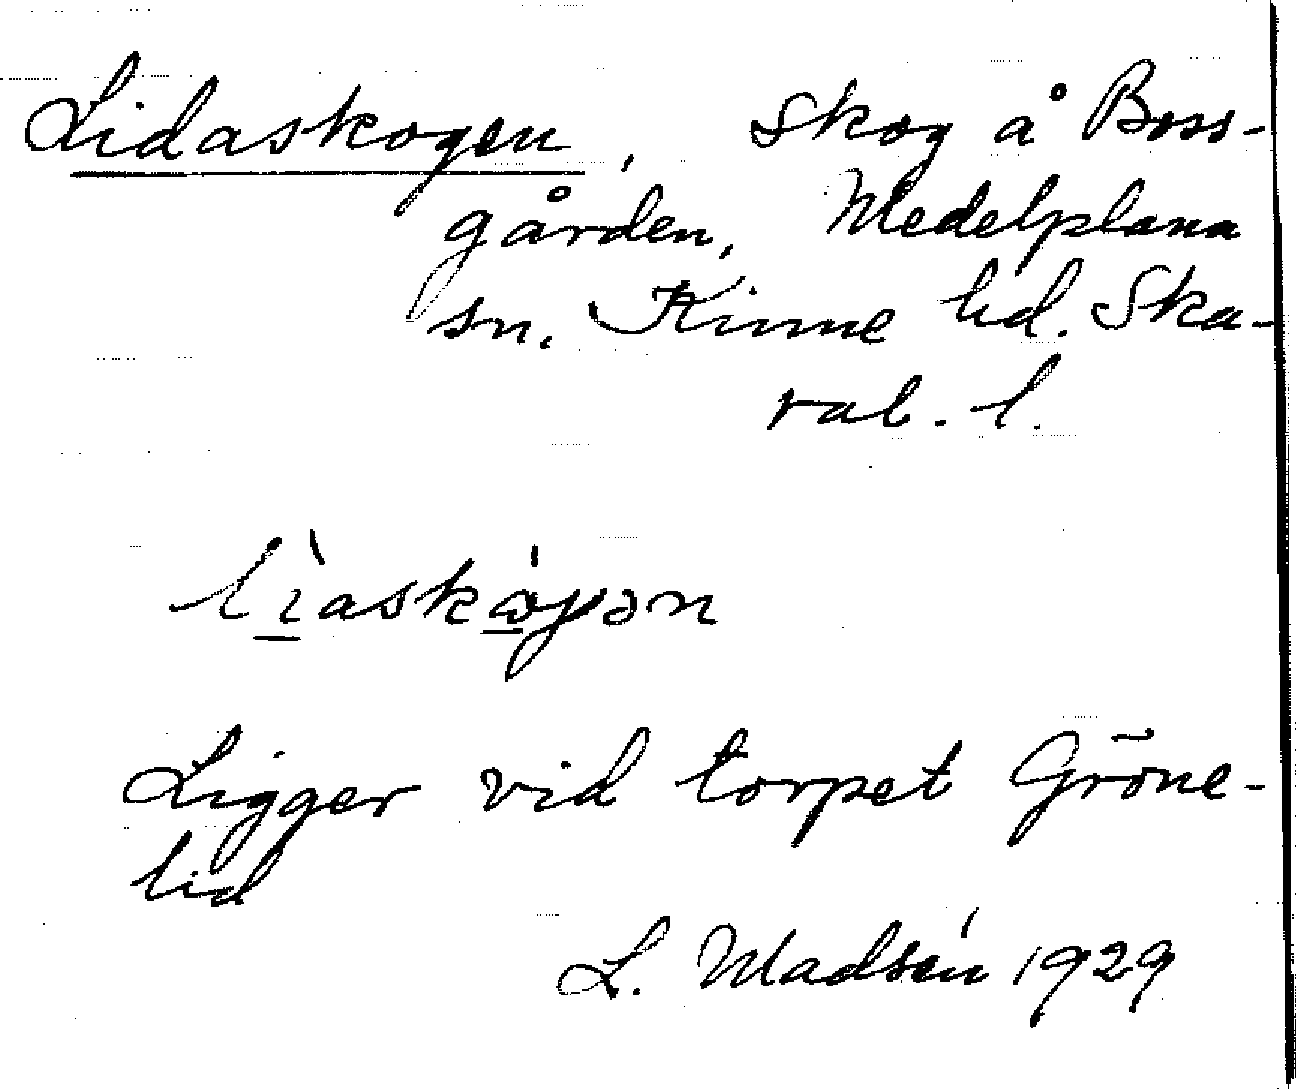 Lidaskogen, Skog å Boss-
gården, Medelplana
sn. Kinne hd. Ska-
rab. l.
lìaskòɣən
Ligger vid torpet Gröne-
lid
L. Madsén 1929